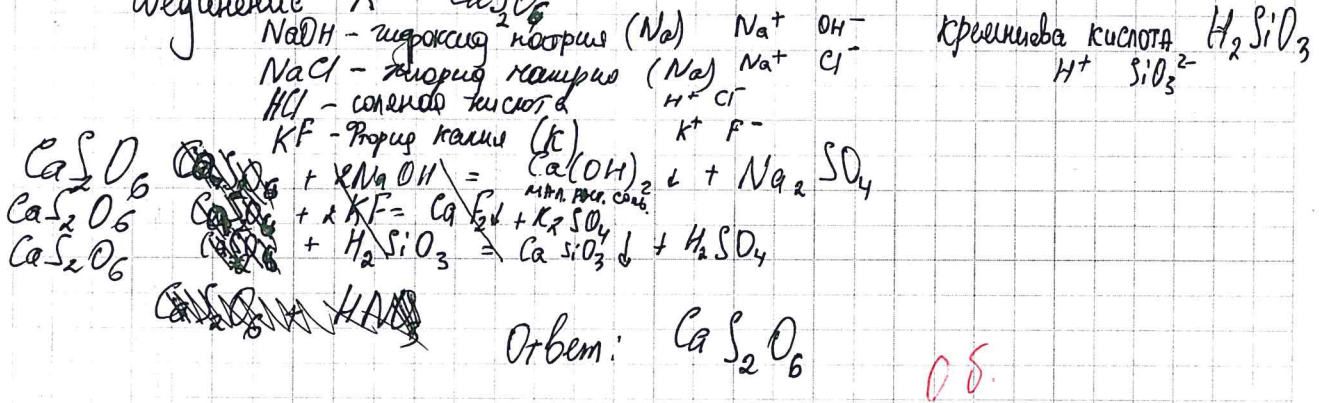 CaS₂O₆
NaOH - гидроксид натрия (Na) Na⁺ OH⁻ кремниева кислота H₂SiO₃
NaCl - хлорид натрия (Na) Na⁺ Cl⁻ H⁺ SiO₃²⁻
HCl - соляная кислота H⁺ Cl⁻
KF - Фторид калия (K) K⁺ F⁻
CaS₂O₆ + 2NaOH = Ca(OH)₂ ↓ + Na₂SO₄
мал. раст.
CaS₂O₆ + 2KF = CaF₂↓ + K₂SO₄
CaS₂O₆ + H₂SiO₃ = CaSiO₃ ↓ + H₂SO₄
Ответ: CaS₂O₆
0 б.